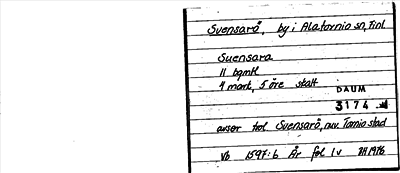 Svensarö, by i Alatornio sn, Finl
Svensara
11 bqmtl
4 mant, 5 öre skatt
DAUM
3174
avser trol Svensarö, nuv. Tornio stad
Vb 1597:6 År fol 1v BH 1976